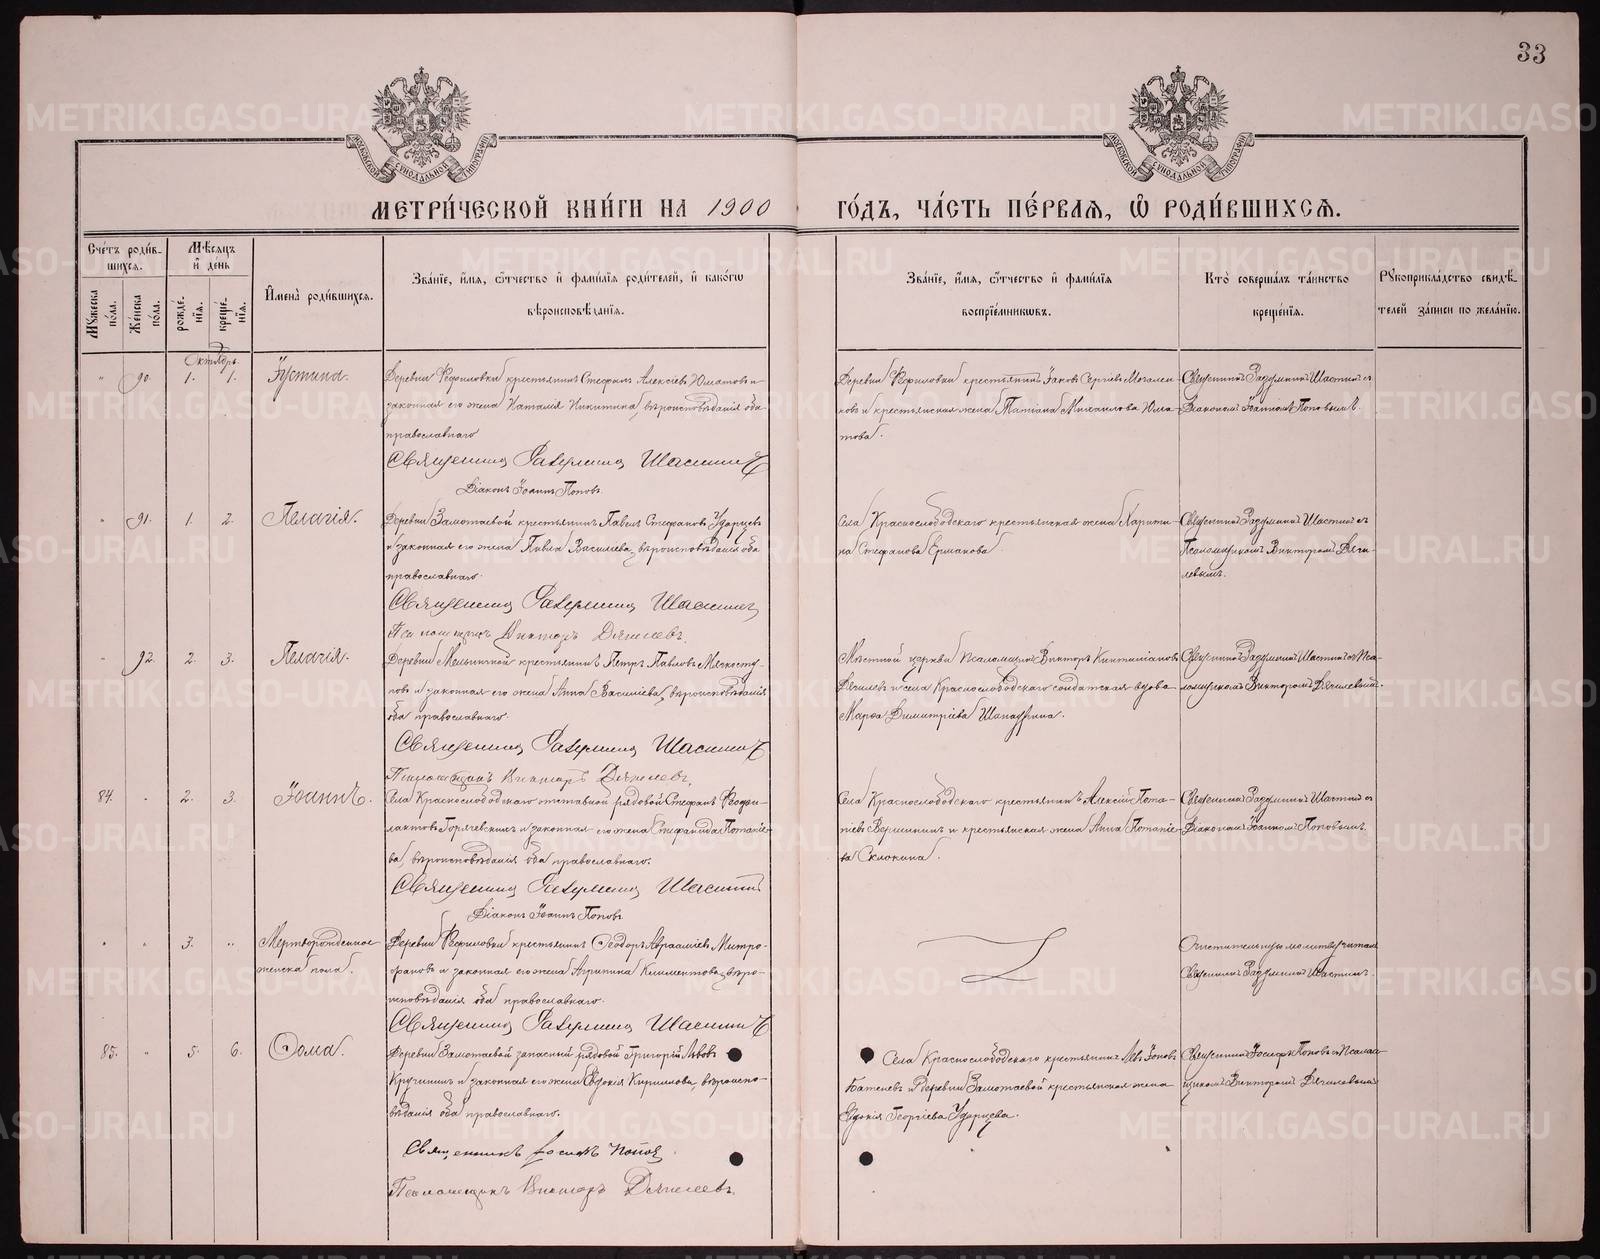 33
МЕТРИ́ЧЕСКОЙ КНИ́ГИ НА 1900 ГО́ДЪ, ЧА́СТЬ ПЕ́РВАЯ, Ѡ РОДИ́ВШИХСЯ.
Сче́тъ роди́вшихся.
Му́жеска по́ла.
Же́нска по́ла.
Мѣсяцъ и де́нь
рожде́нїя.
креще́нїя.
Имена̀ роди́вшихся.
Зва́нїе, и́мя, ѻ́тчество и фами́лїя роди́телей, и како́гѡ
вѣроисповѣ́данїя.
Зва́нїе, и́мя, ѻ́тчество и фами́лїя
воспрїе́мникѡвъ.
Кто̀ соверша́лъ та́инство
креще́нїя.
Рꙋкоприкла́дство свидѣ́телей за́писи по жела́нїю.
Октябрь.
" 90. 1. 1. Іустина.
Деревни Ѳефиловки крестьянинъ Стефанъ Алексіевъ Юматовъ и
законная его жена Наталія Никитина, вѣроисповѣданія оба
православнаго
Священникъ Шастинъ
Діаконъ Іоаннъ Поповъ.
Деревни Ѳефиловки крестьянинъ Іаковъ Сергіевъ
и крестьянская жена Татіана Михаилова Юма-
това.
Священникъ Шастинъ съ
Діакономъ Іоанномъ Поповымъ.
" 91. 1. 2. Пелагія.
Деревни Замотаевой крестьянинъ Павелъ Стефановъ Ударцевъ
и законная его жена Павла Василіева, вѣроисповѣданія оба
православнаго.
Священникъ Шастинъ
Псаломщикъ Викторъ Дягилевъ.
Села Краснослободскаго крестьянская жена Харити-
на Стефанова Ермакова.
Священникъ Шастинъ съ
Псаломщикомъ Викторомъ Дяги-
левымъ.
" 92. 2. 3. Пелагія.
Деревни Мельничной крестьянинъ Петръ Павловъ
и законная его жена Анна Василіева, вѣроисповѣданія
оба православнаго.
Священникъ Шастинъ
Псаломщикъ Викторъ Дягилевъ.
Мѣстной церкви псаломщикъ Викторъ
Дягилевъ и села Краснослободскаго солдатская вдова
Марѳа Димитріева
Священникъ Шастинъ съ Пса-
ломщикомъ Викторомъ Дягилевымъ.
84. " 2. 3. Іоаннъ.
Села Краснослободскаго отставной рядовой Стефанъ Ѳеофи-
лактовъ Горячевскихъ и законная его жена Стефанида Потапіе-
ва, вѣроисповѣданія оба православнаго.
Священникъ Шастинъ
Діаконъ Іоаннъ Поповъ.
Села Краснослободскаго крестьянинъ Алексій Пота-
піевъ Вершининъ и крестьянская жена Анна Потапіе-
ва Склюкина.
Священникъ Шастинъ съ
Діакономъ Іоанномъ Поповымъ.
" " 3. " Мертворожденное
женска пола.
Деревни Ѳефиловки крестьянинъ Ѳеодоръ Авраамiевъ Митро-
фановъ и законная его жена Агрипина Климентова, вѣро-
исповѣданія оба православнаго.
Священникъ Шастинъ
Очистительную молитву читалъ
Священникъ Шастинъ.
85. " 5. 6. Ѳома.
Деревни Замотаевой запасный рядовой Григорій Львовъ
и законная его жена Евдокія Кириллова, вѣроиспо-
вѣданія оба православнаго.
Священникъ Іосифъ Поповъ.
Псаломщикъ Викторъ Дягилевъ.
Села Краснослободскаго крестьянинъ Левъ Іоновъ
и деревни Замотаевой крестьянская жена
Евдокія Георгіева Ударцева.
Священникъ Іосифъ Поповъ съ Псалом-
щикомъ Викторомъ Дягилевымъ
METRIKI.GASO-URAL.RU